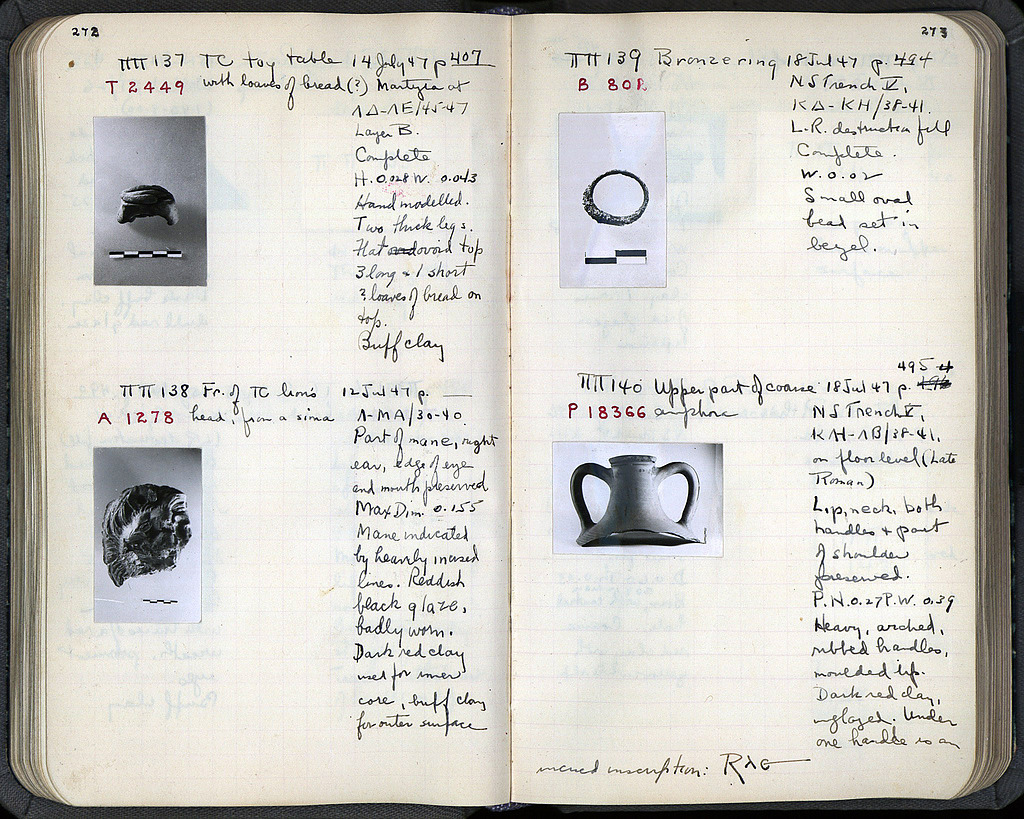 272
ΠΠ 137 TC toy table 14 July 47 p 407
T 2449 with loaves of bread (?) Martyra at
ΛΔ-ΛΕ/45-47
Layer B.
Complete
H. 0.028 W. 0.043
Hand modelled.
Two thick legs.
Flat ovoid top
3 long + 1 short
? loaves of bread on
top.
Buff clay
ΠΠ 138 Fr. of TC lion's 12 Jul 47 p.
A 1278 head, from a sima Λ-ΜΑ/30-40
Part of mane, right
ear, edge of eye
and mouth preserved
Max Dim. 0.155
Mane indicated
by heavily incised
lines. Reddish
black glaze,
badly worn.
Dark red clay
used for inner
core, buff clay
for outer surface
273
ΠΠ 139 Bronze ring 18 Jul 47 p. 494
B 802 NS Trench V,
ΚΔ-ΚΗ/38-41.
L.R. destruction fill
Complete.
W. 0.02
Small oval
bead set in
bezel.
495
ΠΠ 140 Upper part of coarse 18 Jul 47 p.
P 18366 amphora NS Trench V,
ΚΗ-ΛΒ/38-41,
on floor level (Late
Roman)
Lip, neck, both
handles + part
of shoulder
preserved.
P.H. 0.27 P.W. 0.39
Heavy, arched,
ribbed handles,
moulded lip.
Dark red clay,
unglazed. Under
one handle is an
incised inscription: